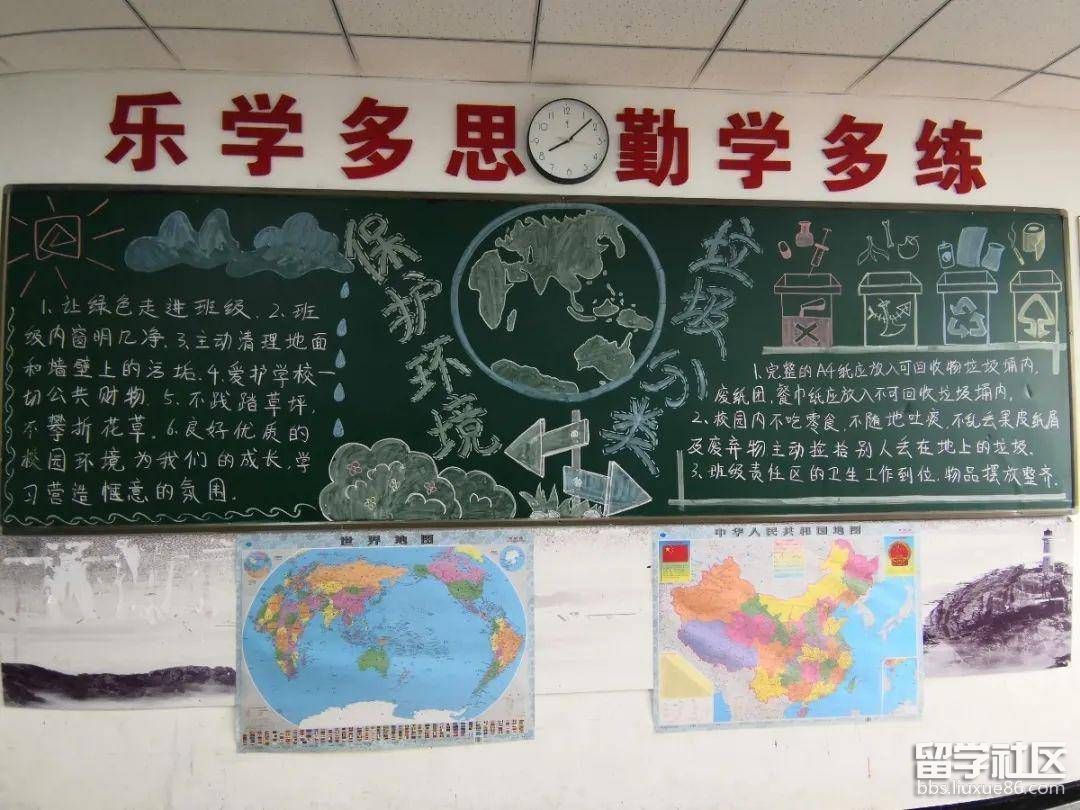 乐学多思 勤学多练
保护环境
垃圾分类
1.让绿色走进班级.2.班
级内窗明几净.3.主动清理地面
和墙壁上的污垢.4.爱护学校一
切公共财物.5.不践踏草坪,
不攀折花草.6.良好优质的
校园环境为我们的成长,学
习营造惬意的氛围.
1.完整的A4纸应放入可回收物垃圾桶内,
废纸团,餐巾纸应放入不可回收垃圾桶内.
2.校园内不吃零食,不随地吐痰,不乱丢果皮纸屑
及废弃物主动捡拾别人丢在地上的垃圾.
3.班级责任区的卫生工作到位.物品摆放整齐.
世界地图
中华人民共和国地图
留学社区
bbs.liuxue86.com